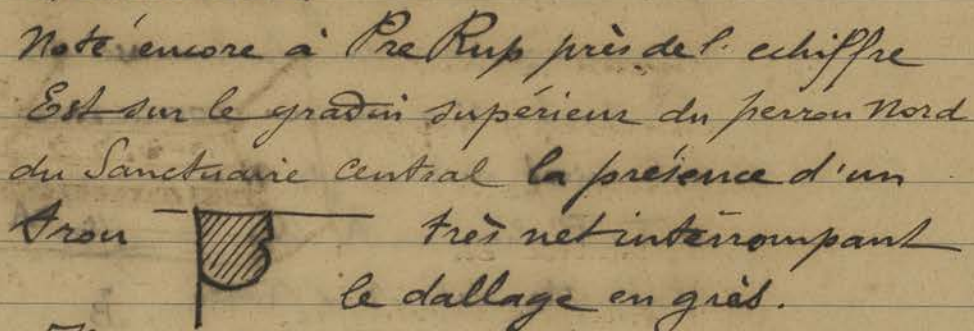 Noté encore à Pre Rup près de l'echiffre
Est sur le gradin supérieur du perron Nord
du Sanctuaire Central la présence d'un
trou très net interrompant
le dallage en grès.